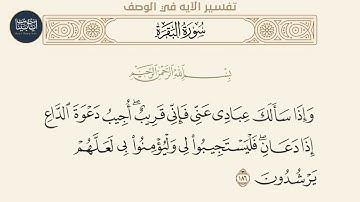 تفسير الآيه في الوصف
سُورَةُ البَقَرَةِ
بِسْمِ اللَّهِ الرَّحْمَنِ الرَّحِيمِ
وَإِذَا سَأَلَكَ عِبَادِى عَنِّى فَإِنِّى قَرِيبٌ ۖ أُجِيبُ دَعْوَةَ ٱلدَّاعِ
إِذَا دَعَانِ ۖ فَلْيَسْتَجِيبُوا۟ لِى وَلْيُؤْمِنُوا۟ بِى لَعَلَّهُمْ
يَرْشُدُونَ ١٨٦